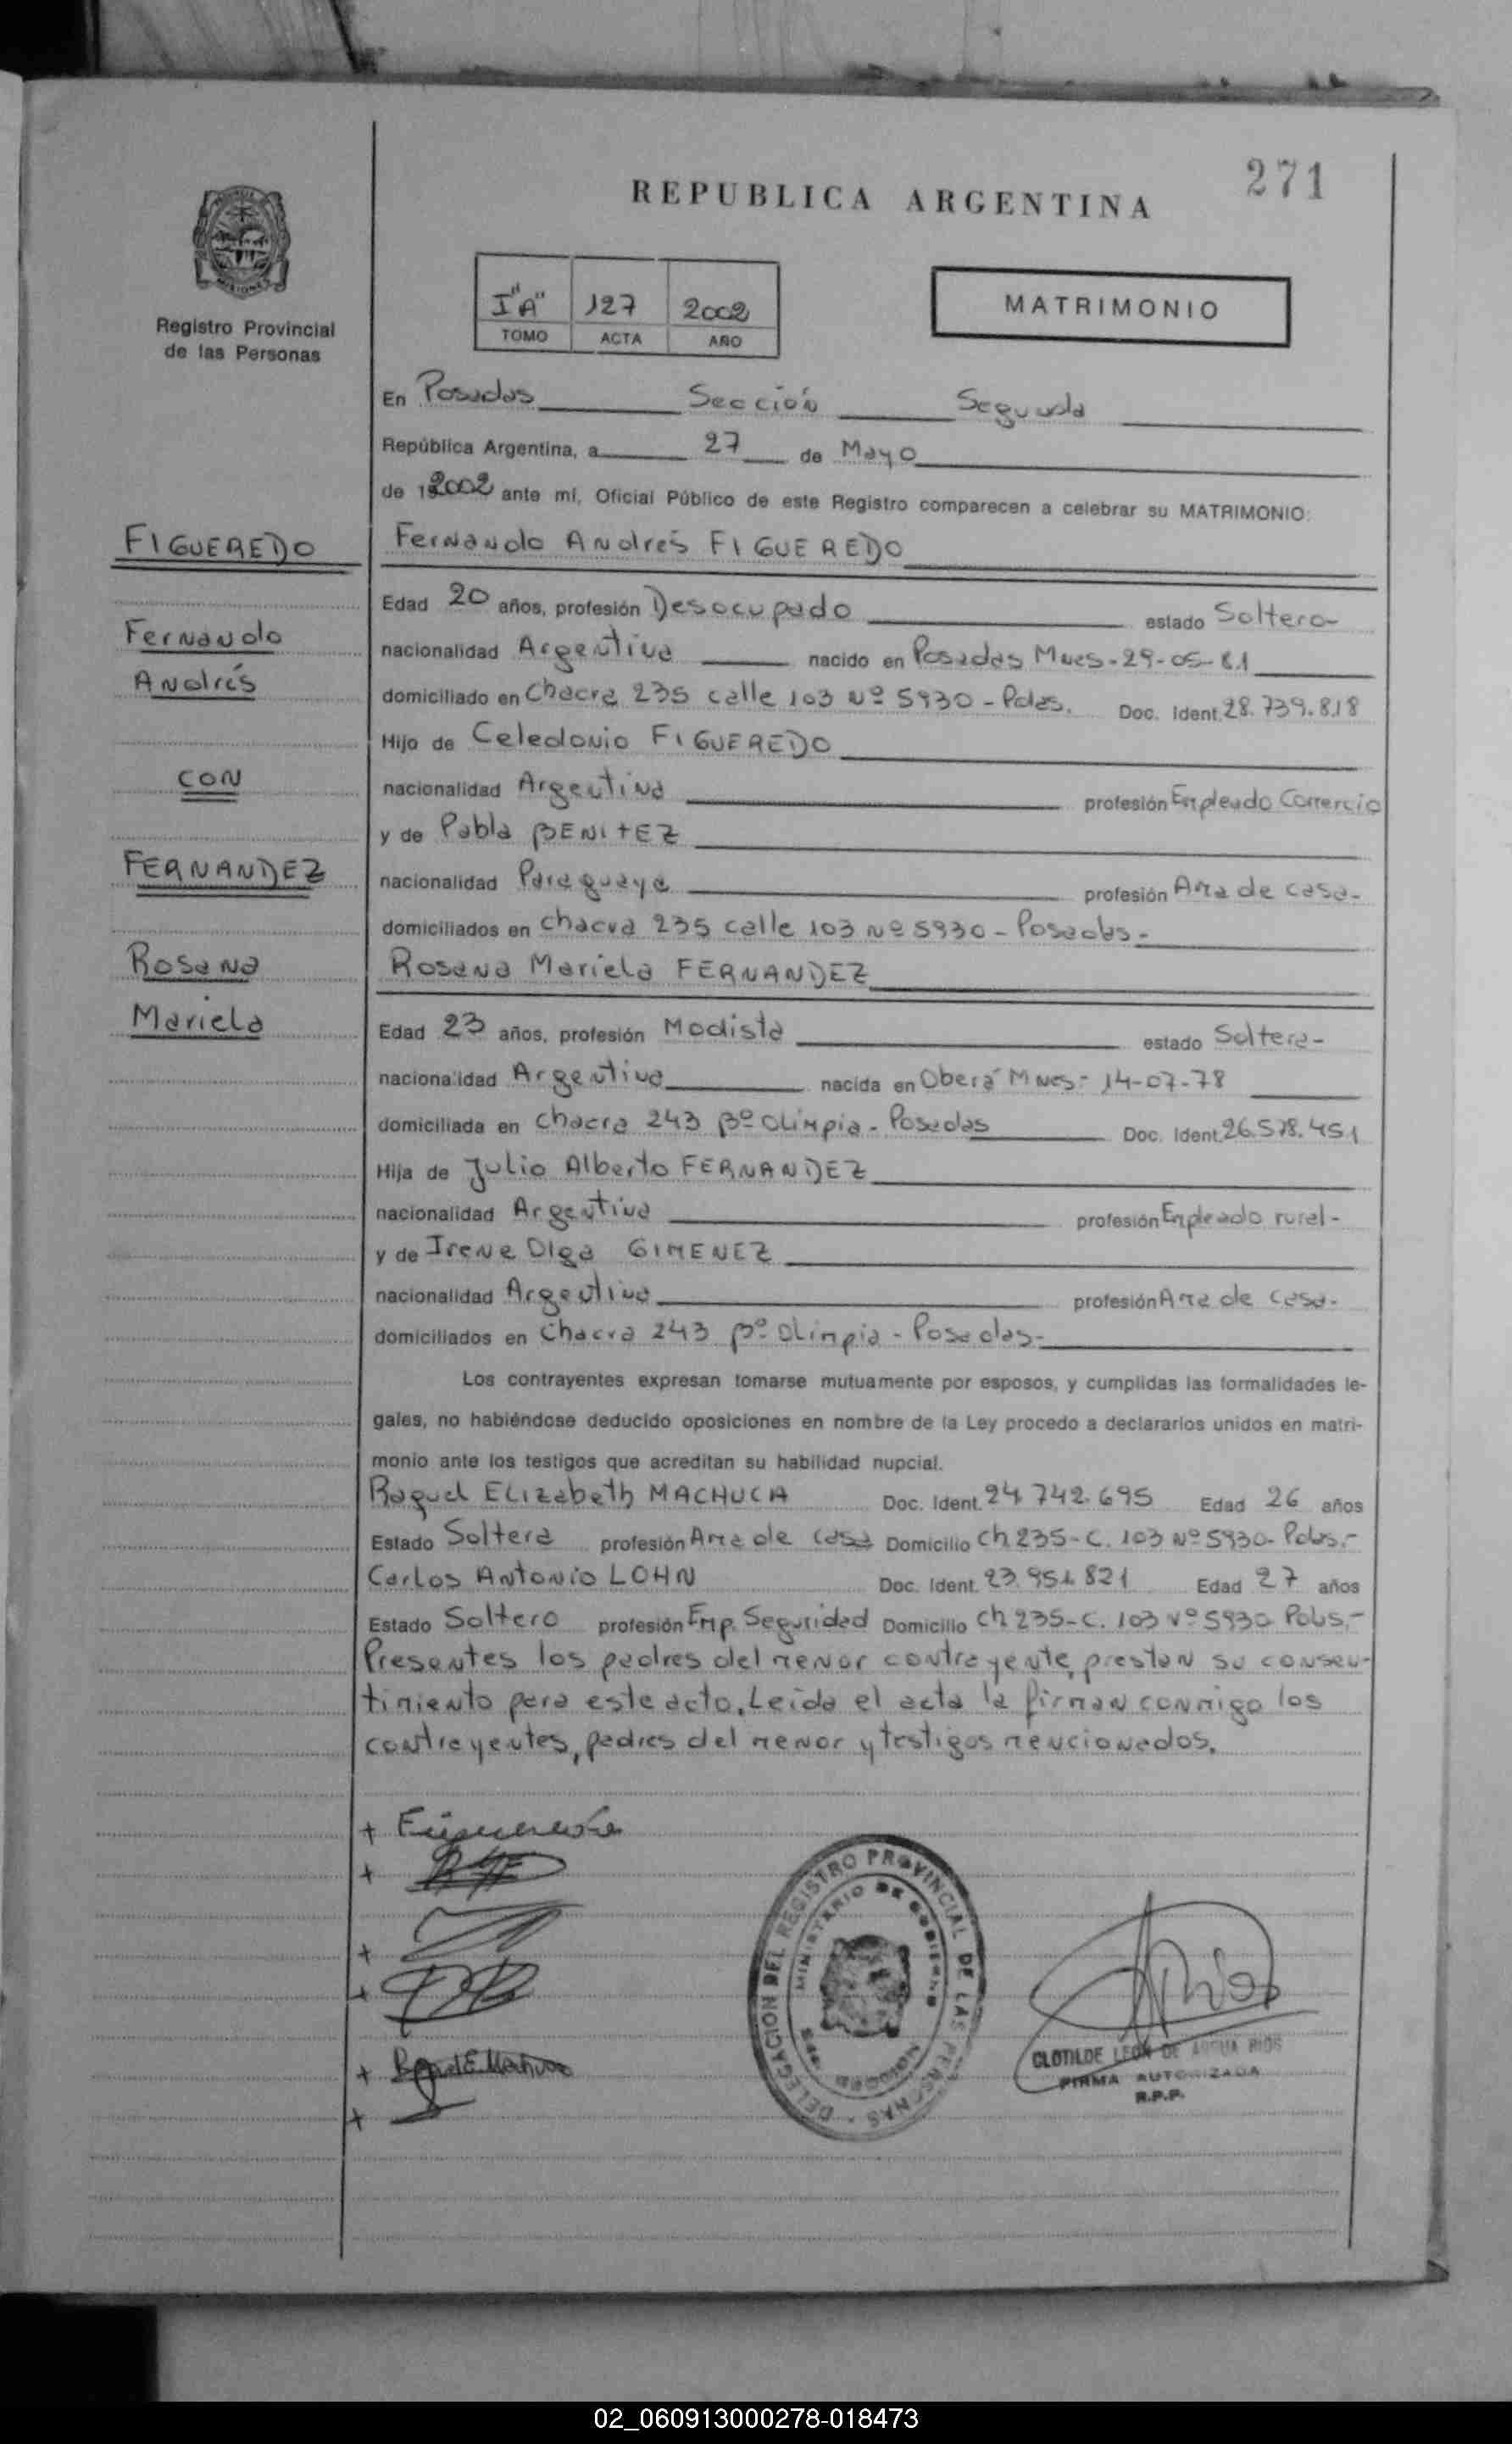 271
REPUBLICA ARGENTINA
Registro Provincial
de las Personas
I"A" 127 2002
TOMO ACTA AÑO
MATRIMONIO
En Posadas Sección Segunda
República Argentina, a 27 de Mayo
de 2002 ante mí, Oficial Público de este Registro comparecen a celebrar su MATRIMONIO:
FIGUEREDO
Fernando
Andrés
CON
FERNANDEZ
Rosana
Mariela
Fernando Andrés FIGUEREDO
Edad 20 años, profesión Desocupado estado Soltero-
nacionalidad Argentina nacido en Posadas Mnes-29-05-81
domiciliado en Chacra 235 calle 103 Nº 5930 - Pdas. Doc. Ident. 28.739.818
Hijo de Celedonio FIGUEREDO
nacionalidad Argentina profesión Empleado Comercio
y de Pabla BENITEZ
nacionalidad Paraguaya profesión Ama de casa-
domiciliados en chacra 235 calle 103 Nº 5930 - Posadas-
Rosana Mariela FERNANDEZ
Edad 23 años, profesión Modista estado Soltera-
nacionalidad Argentina nacida en Oberá Mnes- 14-07-78
domiciliada en chacra 243 Bº Olimpia - Posadas Doc. Ident. 26.578.451
Hija de Julio Alberto FERNANDEZ
nacionalidad Argentina profesión Empleado rural-
y de Irene Olga GIMENEZ
nacionalidad Argentina profesión Ama de casa-
domiciliados en Chacra 243 Bº Olimpia - Posadas-
Los contrayentes expresan tomarse mutuamente por esposos, y cumplidas las formalidades le-
gales, no habiéndose deducido oposiciones en nombre de la Ley procedo a declararlos unidos en matri-
monio ante los testigos que acreditan su habilidad nupcial.
Raquel Elizabeth MACHUCA Doc. Ident. 24.742.695 Edad 26 años
Estado Soltera profesión Ama de casa Domicilio Ch 235-C. 103 Nº 5930- Pdas.-
Carlos Antonio LOHN Doc. Ident. 23.951.821 Edad 27 años
Estado Soltero profesión Emp. Seguridad Domicilio Ch 235-C. 103 Nº 5930 Pdas.-
Presentes los padres del menor contrayente, prestan su consen-
timiento para este acto. Leída el acta la firman conmigo los
contrayentes, padres del menor y testigos mencionados.
DELEGACION DEL REGISTRO PROVINCIAL DE LAS PERSONAS
MINISTERIO DE GOBIERNO
CLOTILDE LEON DE RIOS
FIRMA AUTORIZADA
R.P.P.
02_060913000278-018473